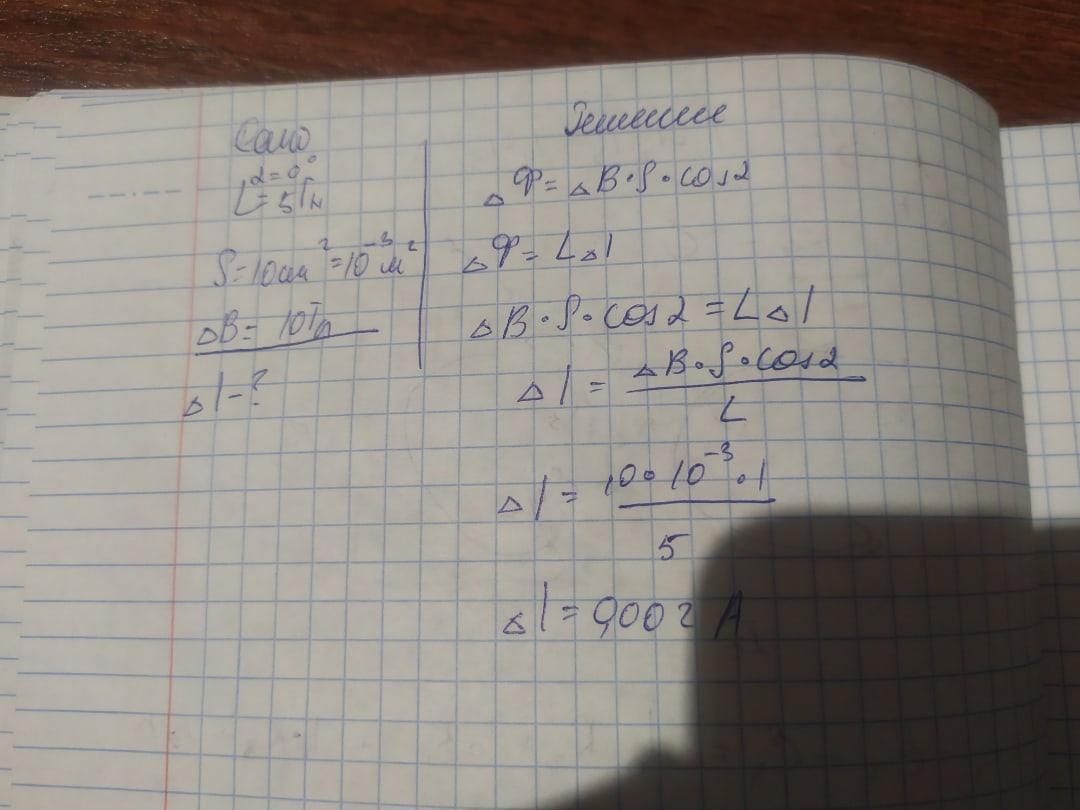 Дано
α=0°
L=5Гн
S=10см²=10⁻³м²
ΔB=10Тл
ΔI-?
Решение
ΔФ=ΔB·S·cosα
ΔФ=LΔI
ΔB·S·cosα=LΔI
ΔI=ΔB·S·cosα/L
ΔI=10·10⁻³·1/5
ΔI=0,002 А